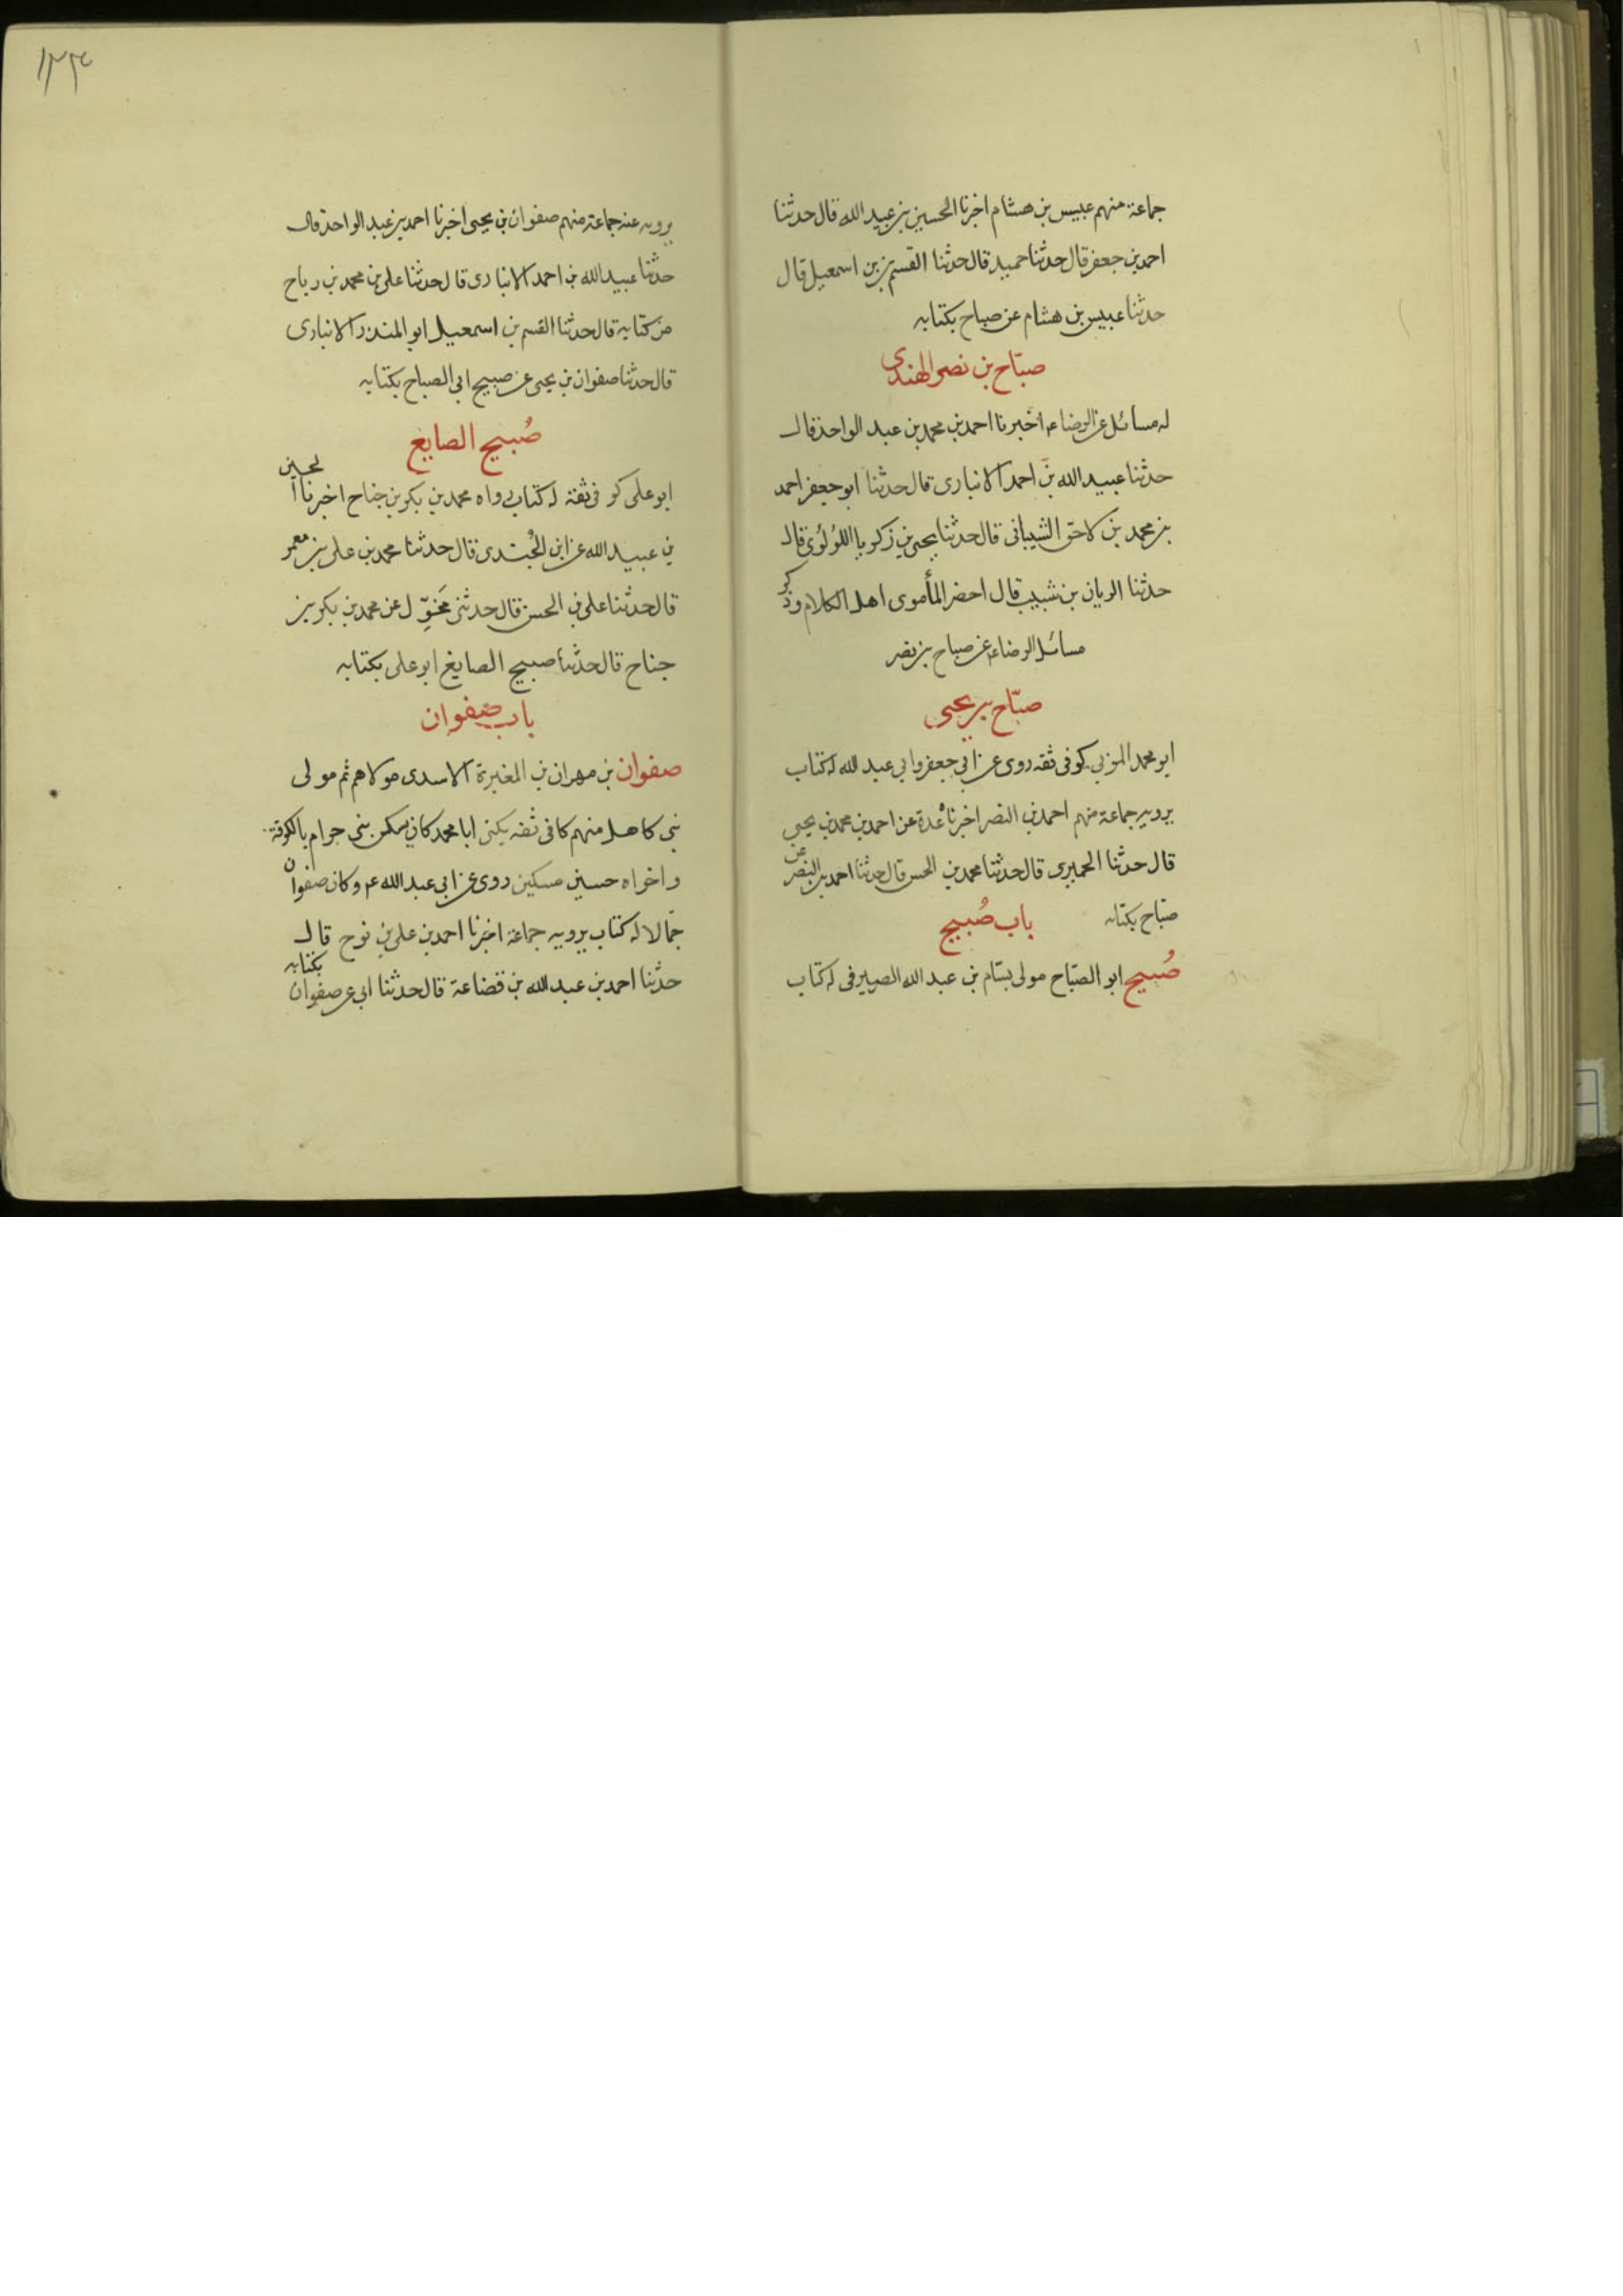 جماعة منهم عبيس بن هشام اخبرنا الحسين بن عبيد الله قال حدثنا
احمد بن جعفر قال حدثنا حميد قال حدثنا القسم بن اسمعيل قال
حدثنا عبيس بن هشام عن صباح بكتابه
صبّاح بن نصر الهندى
له مسائل عن الرضاء عم اخبرنا احمد بن محمد بن عبد الواحد قال
حدثنا عبيد الله بن احمد الانبارى قال حدثنا ابو جعفر احمد
بن محمد بن لاحق الشيبانى قال حدثنا يحيى بن زكريا اللؤلؤى قال
حدثنا الريان بن شبيب قال احضر المأموى اهل الكلام وذكر
مسائل الرضاء عن صباح بن نصر
صبّاح بن يحيى
ابو محمد المزنى كوفى ثقه روى عن ابى جعفر وابى عبد الله له كتاب
يرويه جماعة منهم احمد بن النضر اخبرنا عُدة عن احمد بن محمد بن يحيى
قال حدثنا الحميرى قال حدثنا محمد بن الحسن قال حدثنا احمد بن النضر عن
صبّاح بكتابه
باب صُبيح
صُبيح ابو الصبّاح مولى بسّام بن عبد الله الصيرفى له كتاب
١٣٤
يرويه عنه جماعة منهم صفوان بن يحيى اخبرنا احمد بن عبد الواحد قال
حدثنا عبيد الله بن احمد الانبارى قال حدثنا على بن محمد بن رباح
من كتابه قال حدثنا القسم بن اسمعيل ابو المنذر الانبارى
قال حدثنا صفوان بن يحيى عن صبيح ابى الصباح بكتابه
صُبيح الصايغ
ابو على كوفى ثقة له كتاب رواه محمد بن بكر بن جناح اخبرنا الحسين
بن عبيد الله عن ابن الجُندى قال حدثنا محمد بن على بن معمر
قال حدثنا على بن الحسن قال حدثنى مخوّل عن محمد بن بكر بن
جناح قال حدثنا صبيح الصايغ ابو على بكتابه
باب صفوان
صفوان بن مهران بن المغيرة الاسدى مولاهم ثم مولى
بنى كاهل منهم كافى ثقه يكنى ابا محمد كان يسكن بنى حرام بالكوفة
واخواه حسين مسكين روى عن ابى عبد الله عم وكان صفوان
جمّالا له كتاب يرويه جماعة اخبرنا احمد بن على بن نوح قال
حدثنا احمد بن عبد الله بن قضاعة قال حدثنا ابى عن صفوان بكتابه